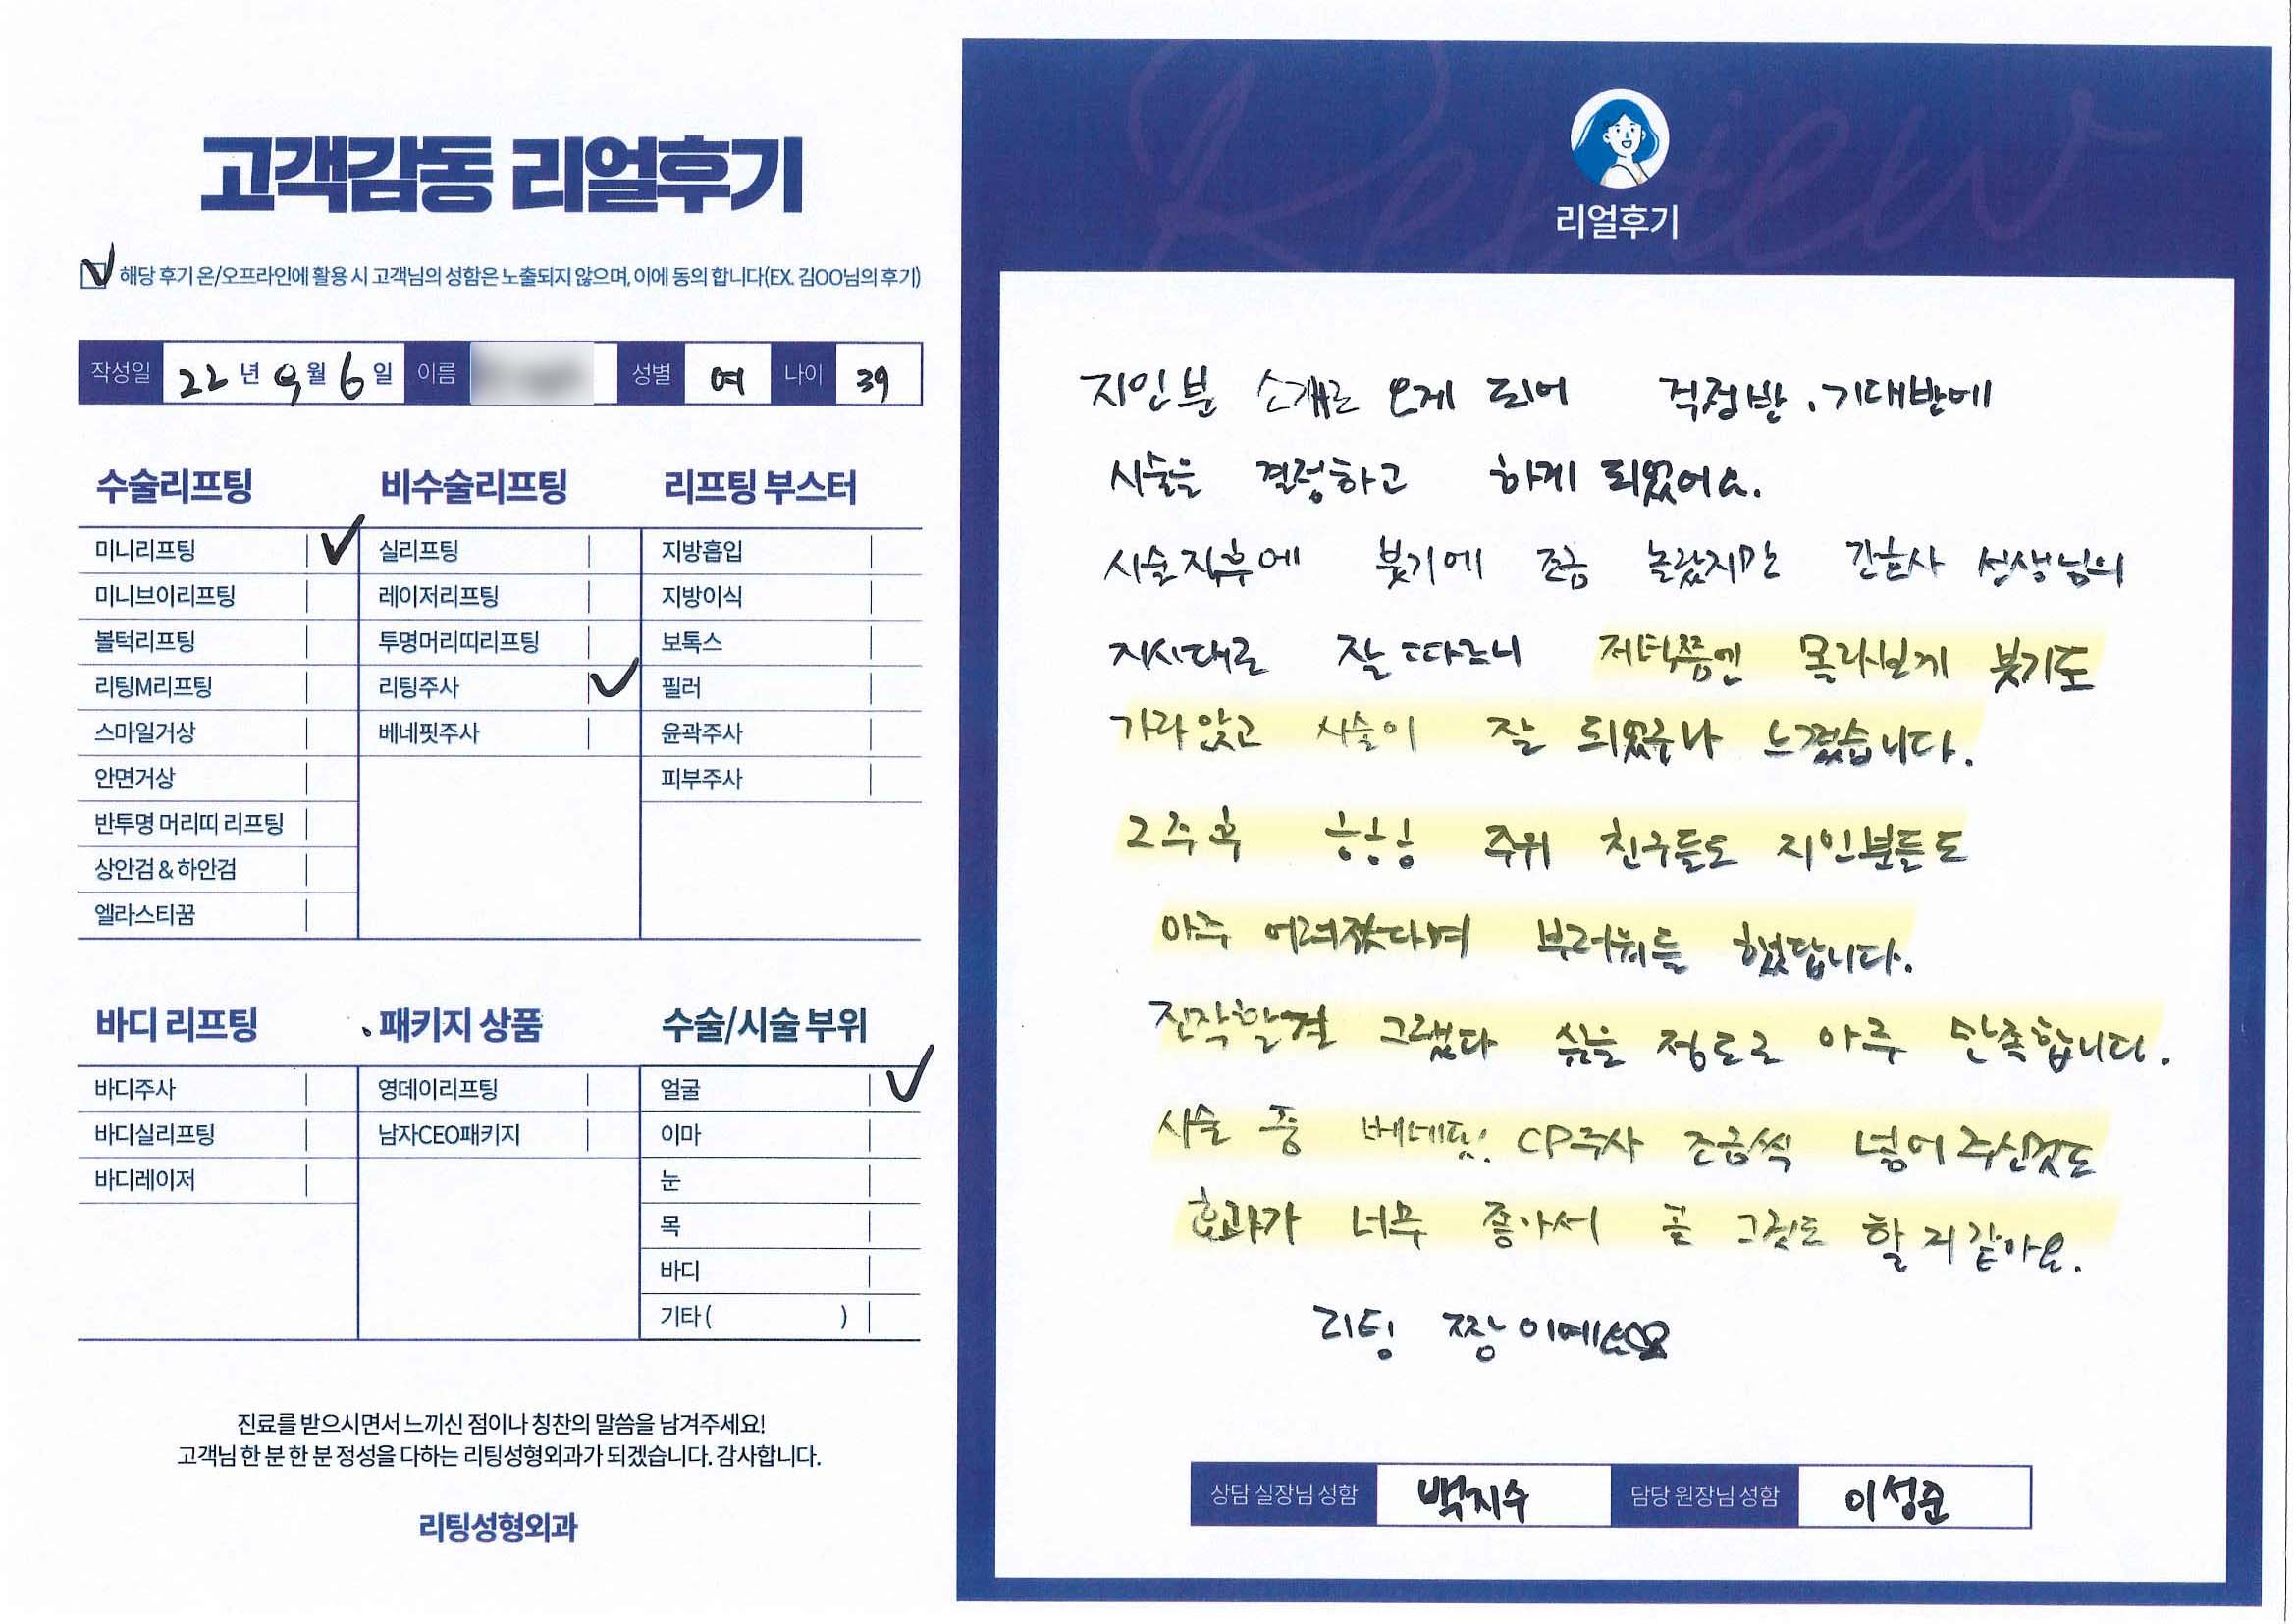 고객감동 리얼후기
해당 후기 온/오프라인에 활용 시 고객님의 성함은 노출되지 않으며, 이에 동의 합니다(EX. 김OO님의 후기)
작성일 22년 9월 6일 이름 성별 여 나이 39
수술리프팅
미니리프팅
미니브이리프팅
볼턱리프팅
리팅M리프팅
스마일거상
안면거상
반투명 머리띠 리프팅
상안검 & 하안검
엘라스티꿈
비수술리프팅
실리프팅
레이저리프팅
투명머리띠리프팅
리팅주사
베네핏주사
리프팅 부스터
지방흡입
지방이식
보톡스
필러
윤곽주사
피부주사
바디 리프팅
바디주사
바디실리프팅
바디레이저
패키지 상품
영데이리프팅
남자CEO패키지
수술/시술 부위
얼굴
이마
눈
목
바디
기타 ( )
진료를 받으시면서 느끼신 점이나 칭찬의 말씀을 남겨주세요!
고객님 한 분 한 분 정성을 다하는 리팅성형외과가 되겠습니다. 감사합니다.
리팅성형외과
Review
리얼후기
지인분 소개로 오게 되어 걱정반, 기대반에
시술을 결정하고 하게 되었어요.
시술직후에 붓기에 조금 놀랐지만 간호사 선생님의
지시대로 잘 따르니 저녁쯤엔 몰라보게 붓기도
가라앉고 시술이 잘 되었구나 느꼈습니다.
2주후 흐흐흐 주위 친구들도 지인분들도
아주 어려졌다며 부러워들 했답니다.
진작할걸 그랬다 싶을 정도로 아주 만족합니다.
시술 중 베네핏, CP주사 조금씩 넣어주신것도
효과가 너무 좋아서 곧 그것도 할거같아요.
리팅 짱이예요
상담 실장님 성함 백지수 담당 원장님 성함 이성준